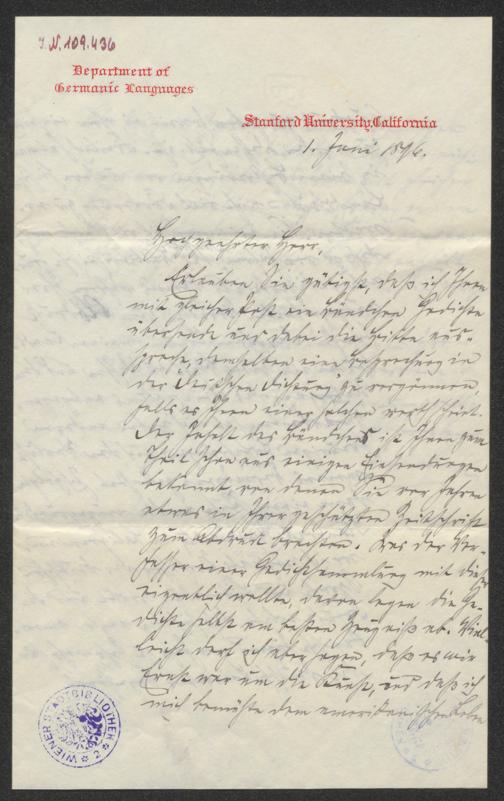 I.N. 109.436
Department of
Germanic Languages
Stanford University, California
1. Juni 1896.
Hochgeehrter Herr,
Erlauben Sie gütigst, daß ich Ihnen
mit gleicher Post ein Bändchen Gedichte
übersende und dabei die Bitte aus-
spreche, demselben eine Besprechung in
der „Deutschen Dichtung" zu vergönnen,
falls es Ihnen einer solchen werth scheint.
Der Inhalt des Bändchens ist Ihnen zum
Theil schon aus einigen Einsendungen
bekannt von denen Sie vor Jahren
etwas in Ihrer geschätzten Zeitschrift
zum Abdruck brachten. Was der Ver-
fasser einer Gedichtsammlung mit dieser
eigentlich wollte, davon legen die Ge-
dichte selbst am besten Zeugniß ab. Viel-
leicht darf ich aber sagen, daß es mir
Ernst war um die Kunst, und daß ich
mich bemühte dem amerikanischen Leben
WIENER STADTBIBLIOTHEK